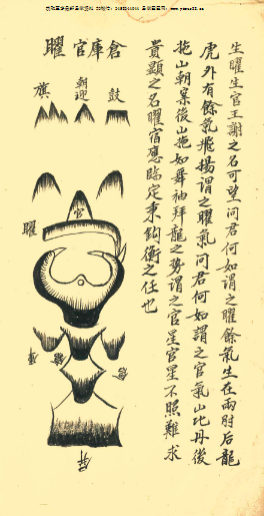 生曜生官王謝之名可望問君何如謂之曜餘氣生在兩肘后龍
虎外有餘氣飛揚謂之曜氣問君何如謂之官氣山比丹後
拖山朝案後山拖如舞袖拜龍之勢謂之官星官星不照難求
貴顯之名曜宿應臨定秉鈞衡之任也
倉庫官曜
鼓
朝迎
旗
官
曜